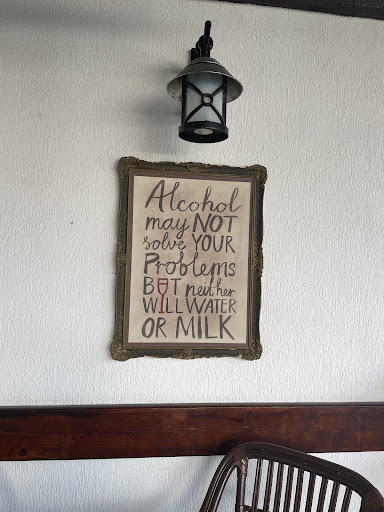 Alcohol
may NOT
solve YOUR
Problems
BUT neither
WILL WATER
OR MILK